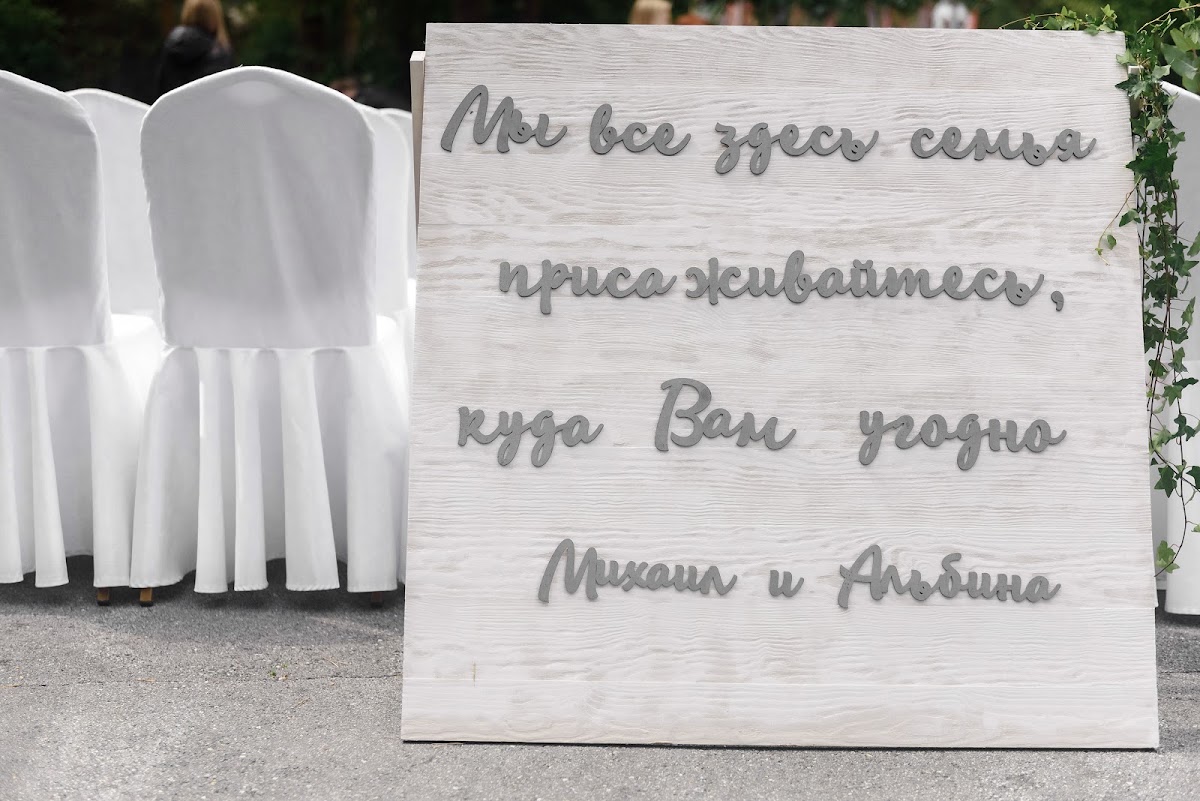 Мы все здесь семья
присаживайтесь,
куда Вам угодно
Михаил и Альбина